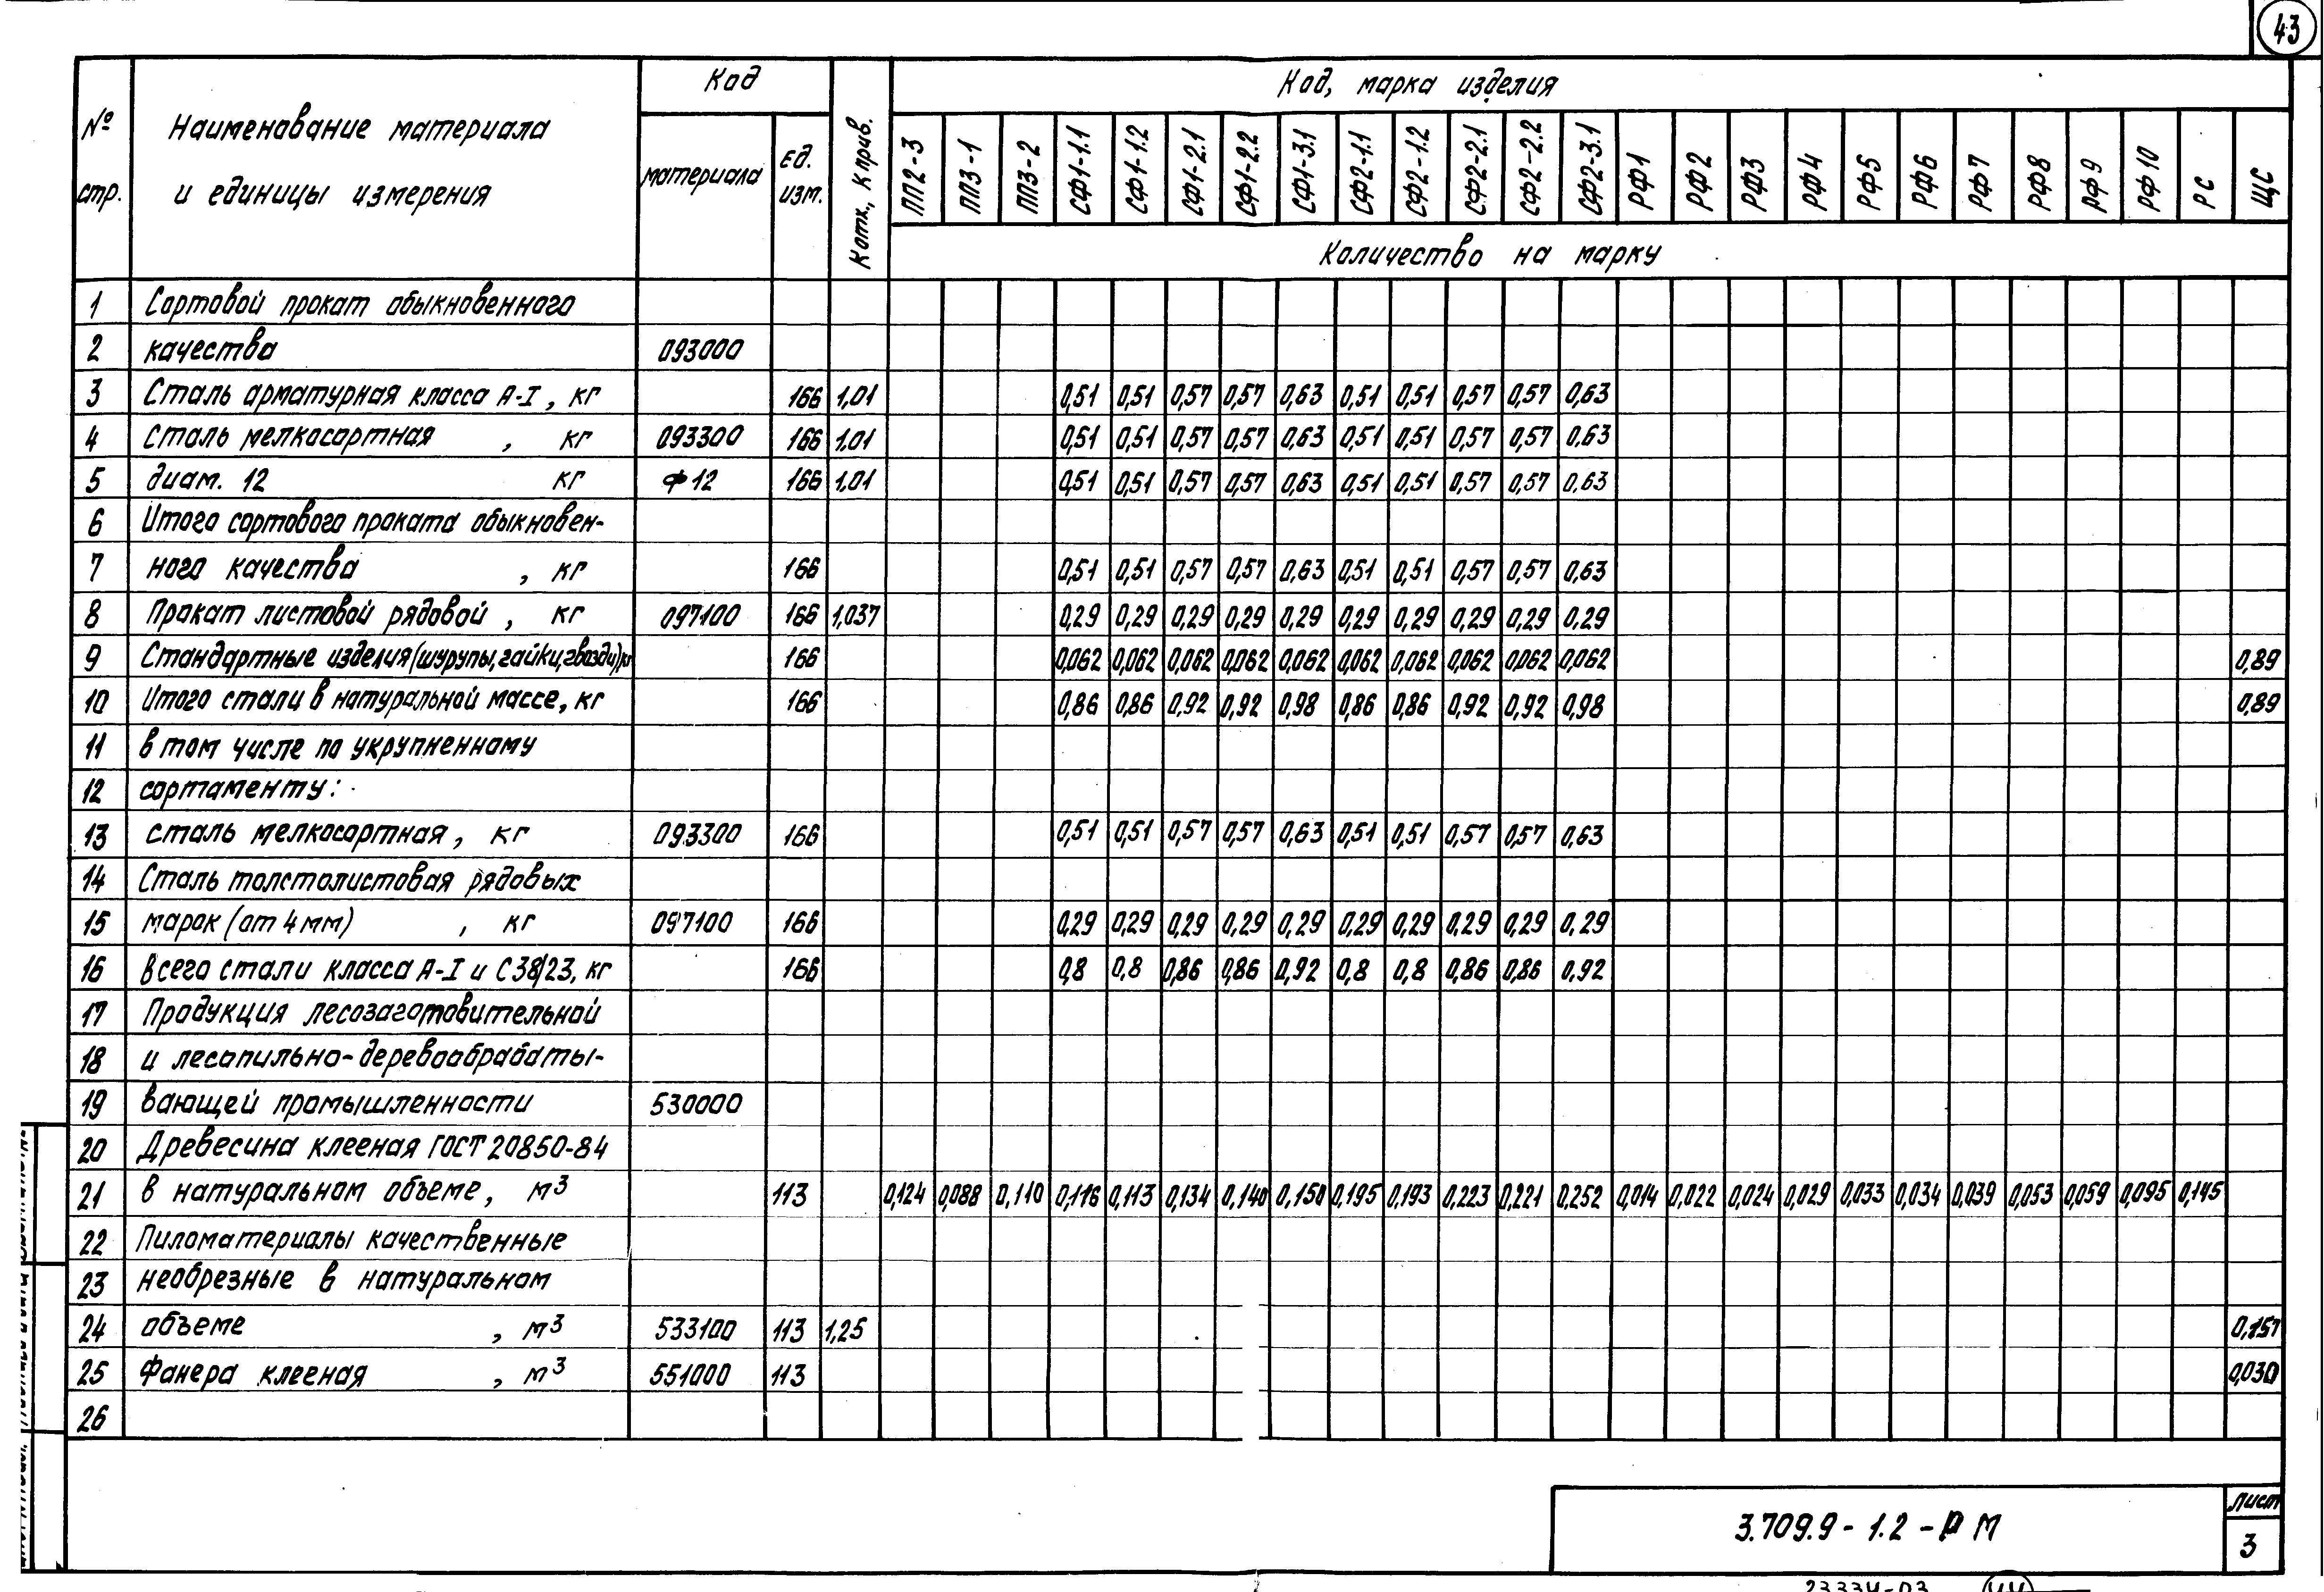 43
№ стр.
Наименование материала и единицы измерения
Код
материала
Ед. изм.
Котх., Кприв.
Код, марка изделия
ПП2-3 ПП3-1 ПП3-2 СФ1-1.1 СФ1-1.2 СФ1-2.1 СФ1-2.2 СФ1-3.1 СФ2-1.1 СФ2-1.2 СФ2-2.1 СФ2-2.2 СФ2-3.1 РФ1 РФ2 РФ3 РФ4 РФ5 РФ6 РФ7 РФ8 РФ9 РФ10 РС ЩС
Количество на марку
1 Сортовой прокат обыкновенного
2 качества 093000
3 Сталь арматурная класса А-I, кг 166 1,01 0,51 0,51 0,57 0,57 0,63 0,51 0,51 0,57 0,57 0,63
4 Сталь мелкосортная , кг 093300 166 1,01 0,51 0,51 0,57 0,57 0,63 0,51 0,51 0,57 0,57 0.63
5 диам. 12 кг ф12 166 1,01 0,51 0,51 0,57 0,57 0,63 0,51 0,51 0,57 0,57 0.63
6 Итого сортового проката обыкновен-
7 ного качества , кг 166 0,51 0,51 0,57 0,57 0,63 0,51 0,51 0,57 0,57 0,63
8 Прокат листовой рядовой , кг 097100 166 1,037 0,29 0,29 0,29 0,29 0,29 0,29 0,29 0,29 0,29 0.29
9 Стандартные изделия (шурупы, гайки, гвозди) кг 166 0,062 0,062 0,062 0,062 0,062 0,062 0,062 0,062 0,062 0,062 0,89
10 Итого стали в натуральной массе, кг 166 0,86 0,86 0,92 0,92 0,98 0,86 0,86 0,92 0,92 0,98 0,89
11 в том числе по укрупненному
12 сортаменту:
13 сталь мелкосортная, кг 093300 166 0,51 0,51 0,57 0,57 0,63 0,51 0,51 0,57 0,57 0,63
14 Сталь толстолистовая рядовых
15 марок (от 4 мм) , кг 097100 166 0,29 0,29 0,29 0,29 0,29 0,29 0,29 0,29 0,29 0.29
16 всего стали класса А-I и С38/23, кг 166 0,8 0,8 0,86 0,86 0,92 0,8 0,8 0,86 0,86 0,92
17 Продукция лесозаготовительной
18 и лесопильно-деревообрабаты-
19 вающей промышленности 530000
20 Древесина клееная ГОСТ 20850-84
21 в натуральном объеме, м3 113 0,124 0,088 0,110 0,116 0,113 0,134 0,140 0,150 0,195 0,193 0,223 0,221 0,252 0,014 0,022 0,024 0,029 0,033 0,034 0,039 0,053 0,059 0,095 0,145
22 Пиломатериалы качественные
23 необрезные в натуральном
24 объеме , м3 533100 113 1,25 0,157
25 Фанера клееная , м3 551000 113 0,030
26
3.709.9-1.2-РМ
Лист
3